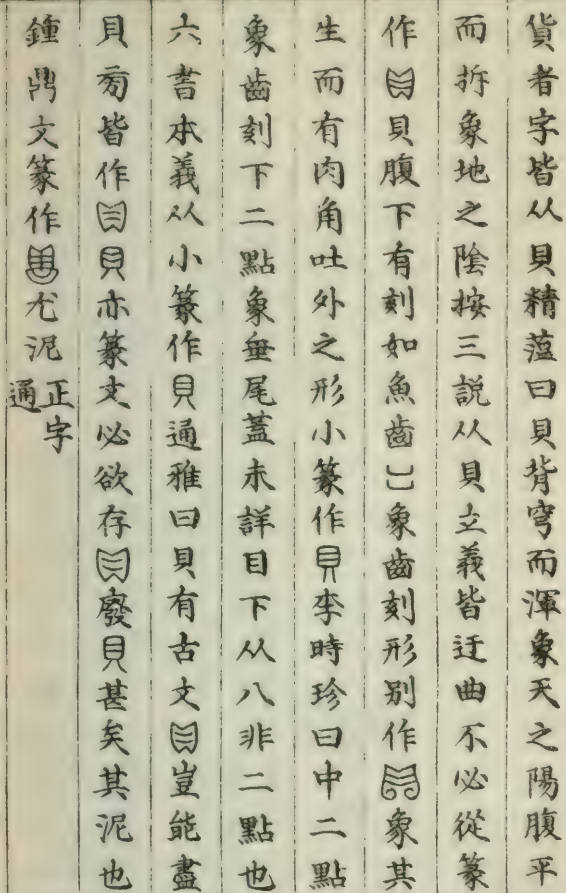 貨者字皆从貝精藴曰貝背穹而渾象天之陽腹平
而拆象地之陰按三説从貝立義皆迂曲不必從篆
作貝腹下有刻如魚齒象齒刻形别作象其
生而有肉角吐外之形小篆作貝李時珍曰中二點
象齒刻下二點象垂尾蓋未詳目下从八非二點也
六書本義从小篆作貝通雅曰貝有古文豈能盡
貝旁皆作貝亦篆文必欲存廢貝甚矣其泥也
鍾鼎文篆作尤泥
正字
通